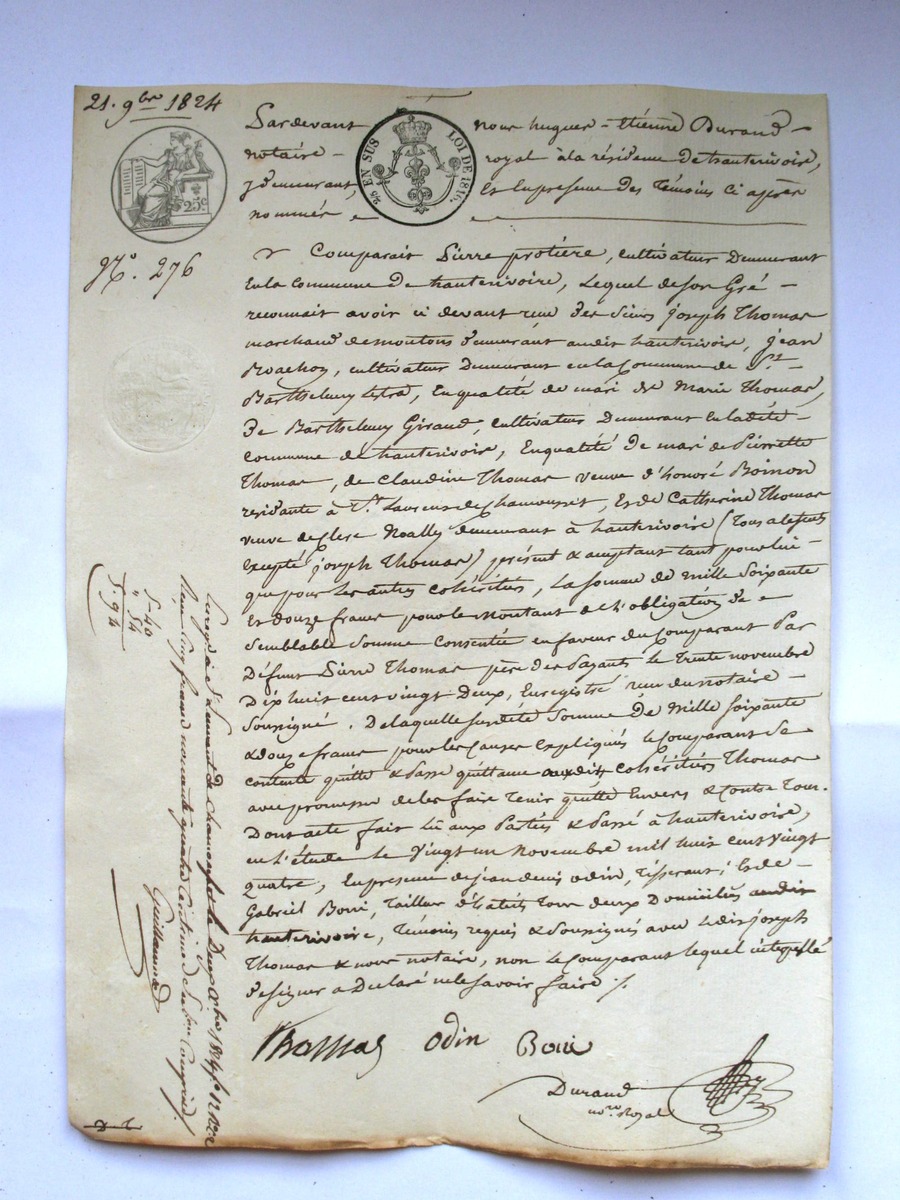 21. 9bre 1824
Pardevant nous hugues - Etienne Durand -
notaire - royal à la résidence De hauterivoire,
y demeurant, Et En presence Des Témoins Ci après
nommés
25 EN SUS LOI DE 1816.
25c
No. 276
Comparait Pierre protière, cultivateur Demeurant
En la Commune De hauterivoire, Lequel de son Gré -
reconnait avoir ci devant reçu Des Sieurs joseph Thomas
marchand de moutons Demeurant audit hauterivoire, jean
cultivateur Demeurant en la Commune de St.
Barthelemy Lestra, En qualité de mari de Marie Thomas,
De Barthelemy Giraud, cultivateur Demeurant En ladite -
Commune de hauterivoire, En qualité De mari de Pierrette
Thomas, de Claudine Thomas veuve d'honoré Boinon
residante à St. Laurent de Chamousset, Et de Catherine Thomas
veuve de Noally demeurant à hauterivoire (Tous absents
Excepté joseph Thomas) présent & acceptant tant pour lui
que pour les autres cohéritiers, La somme de mille Soixante
Et Douze francs pour le montant de l'obligation De
Semblable Somme Consentie en faveur du Comparant Par
Défunt Pierre Thomas père des Payants le Trente novembre
Dix huit cent vingt Deux, Enregistré reçu du notaire -
Soussigné. De laquelle susdite Somme De Mille soixante
& douze francs pour les Causes Expliqués le Comparant Se
contente quitte & Passe quittance auxdits cohéritiers Thomas
avec promesse de les faire Tenir quitte Envers & Contre Tous.
Dont acte fait lû aux Parties & Passé à hauterivoire,
en l'étude le Vingt un Novembre mil huit Cent Vingt
quatre, En presence de jean denis odin, Tisserant; Et de -
Gabriel Boui, Tailleur d'habits Tous deux Domiciliés audit
hauterivoire, Témoins requis & Soussignés avec Ledit joseph
Thomas & nous notaire, non le Comparant lequel interpellé
De signer a Déclaré ne le savoir faire ./.
Thomas Odin Boui
Durand
nore Royal
Enregistré à St Laurent de Chamousset le Deux Xbre 1824
Reçu Cinq francs nonante quatre Centimes Subon Compris
Guillermet
5-40
" 54
5. 94